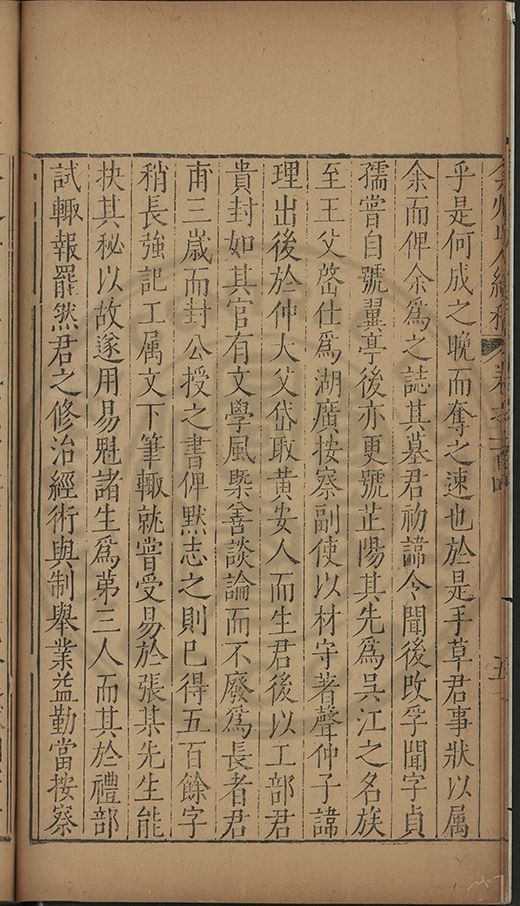 弇州山人續稿 卷之一百 五
乎是何成之晚而奪之速也於是手草君事狀以属
余而俾余爲之誌其墓君初諱令聞後改孚聞字貞
孺嘗自號翼亭後亦更號芷陽其先爲吳江之名族
至王父啓仕爲湖廣按察副使以材守著聲仲子諱
理出後於仲大父岱取黄安人而生君後以工部君
貴封如其官有文學風槩善談論而不廢爲長者君
甫三歲而封公授之書俾默志之則已得五百餘字
稍長強記工属文下筆輒就嘗受易於張某先生能
抉其秘以故遂用易魁諸生爲苐三人而其於禮部
試輒報罷然君之修治經術與制舉業益勤當按察